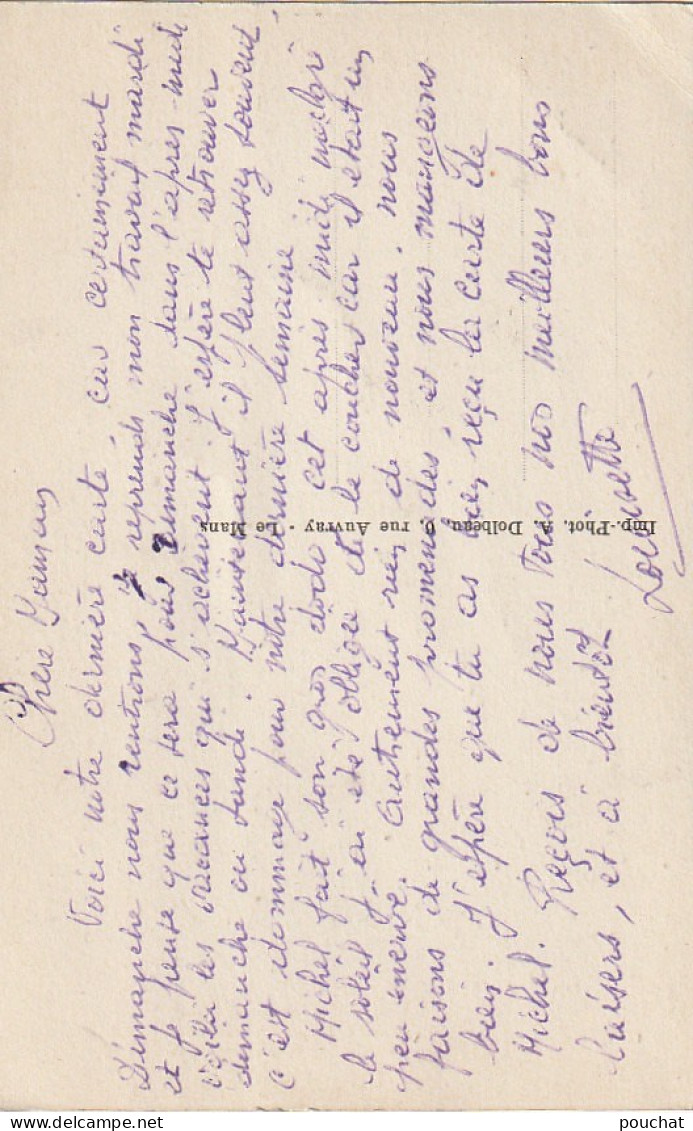 Chère Maman
Voici notre dernière carte, car certainement
Dimanche nous rentrons, je reprends mon travail mardi
et je pense que ce sera pour dimanche dans l'après-midi
voilà les vacances qui s'achèvent. J'espère te retrouver
dimanche ou lundi. Maintenant il pleut assez souvent
c'est dommage pour notre dernière semaine
Michel fait son gros dodo cet après midi malgré
le soleil j'ai été obligée de le coucher car il était un
peu énervé. Autrement rien de nouveau. nous
faisons de grandes promenades, et nous mangeons
bien. J'espère que tu as bien reçu la carte de
Michel. Reçois de nous tous nos meilleurs bons
baisers, et à bientôt
Louisette
Imp.-Phot. A. Dolbeau, 6, rue Auvray - Le Mans
pouchat